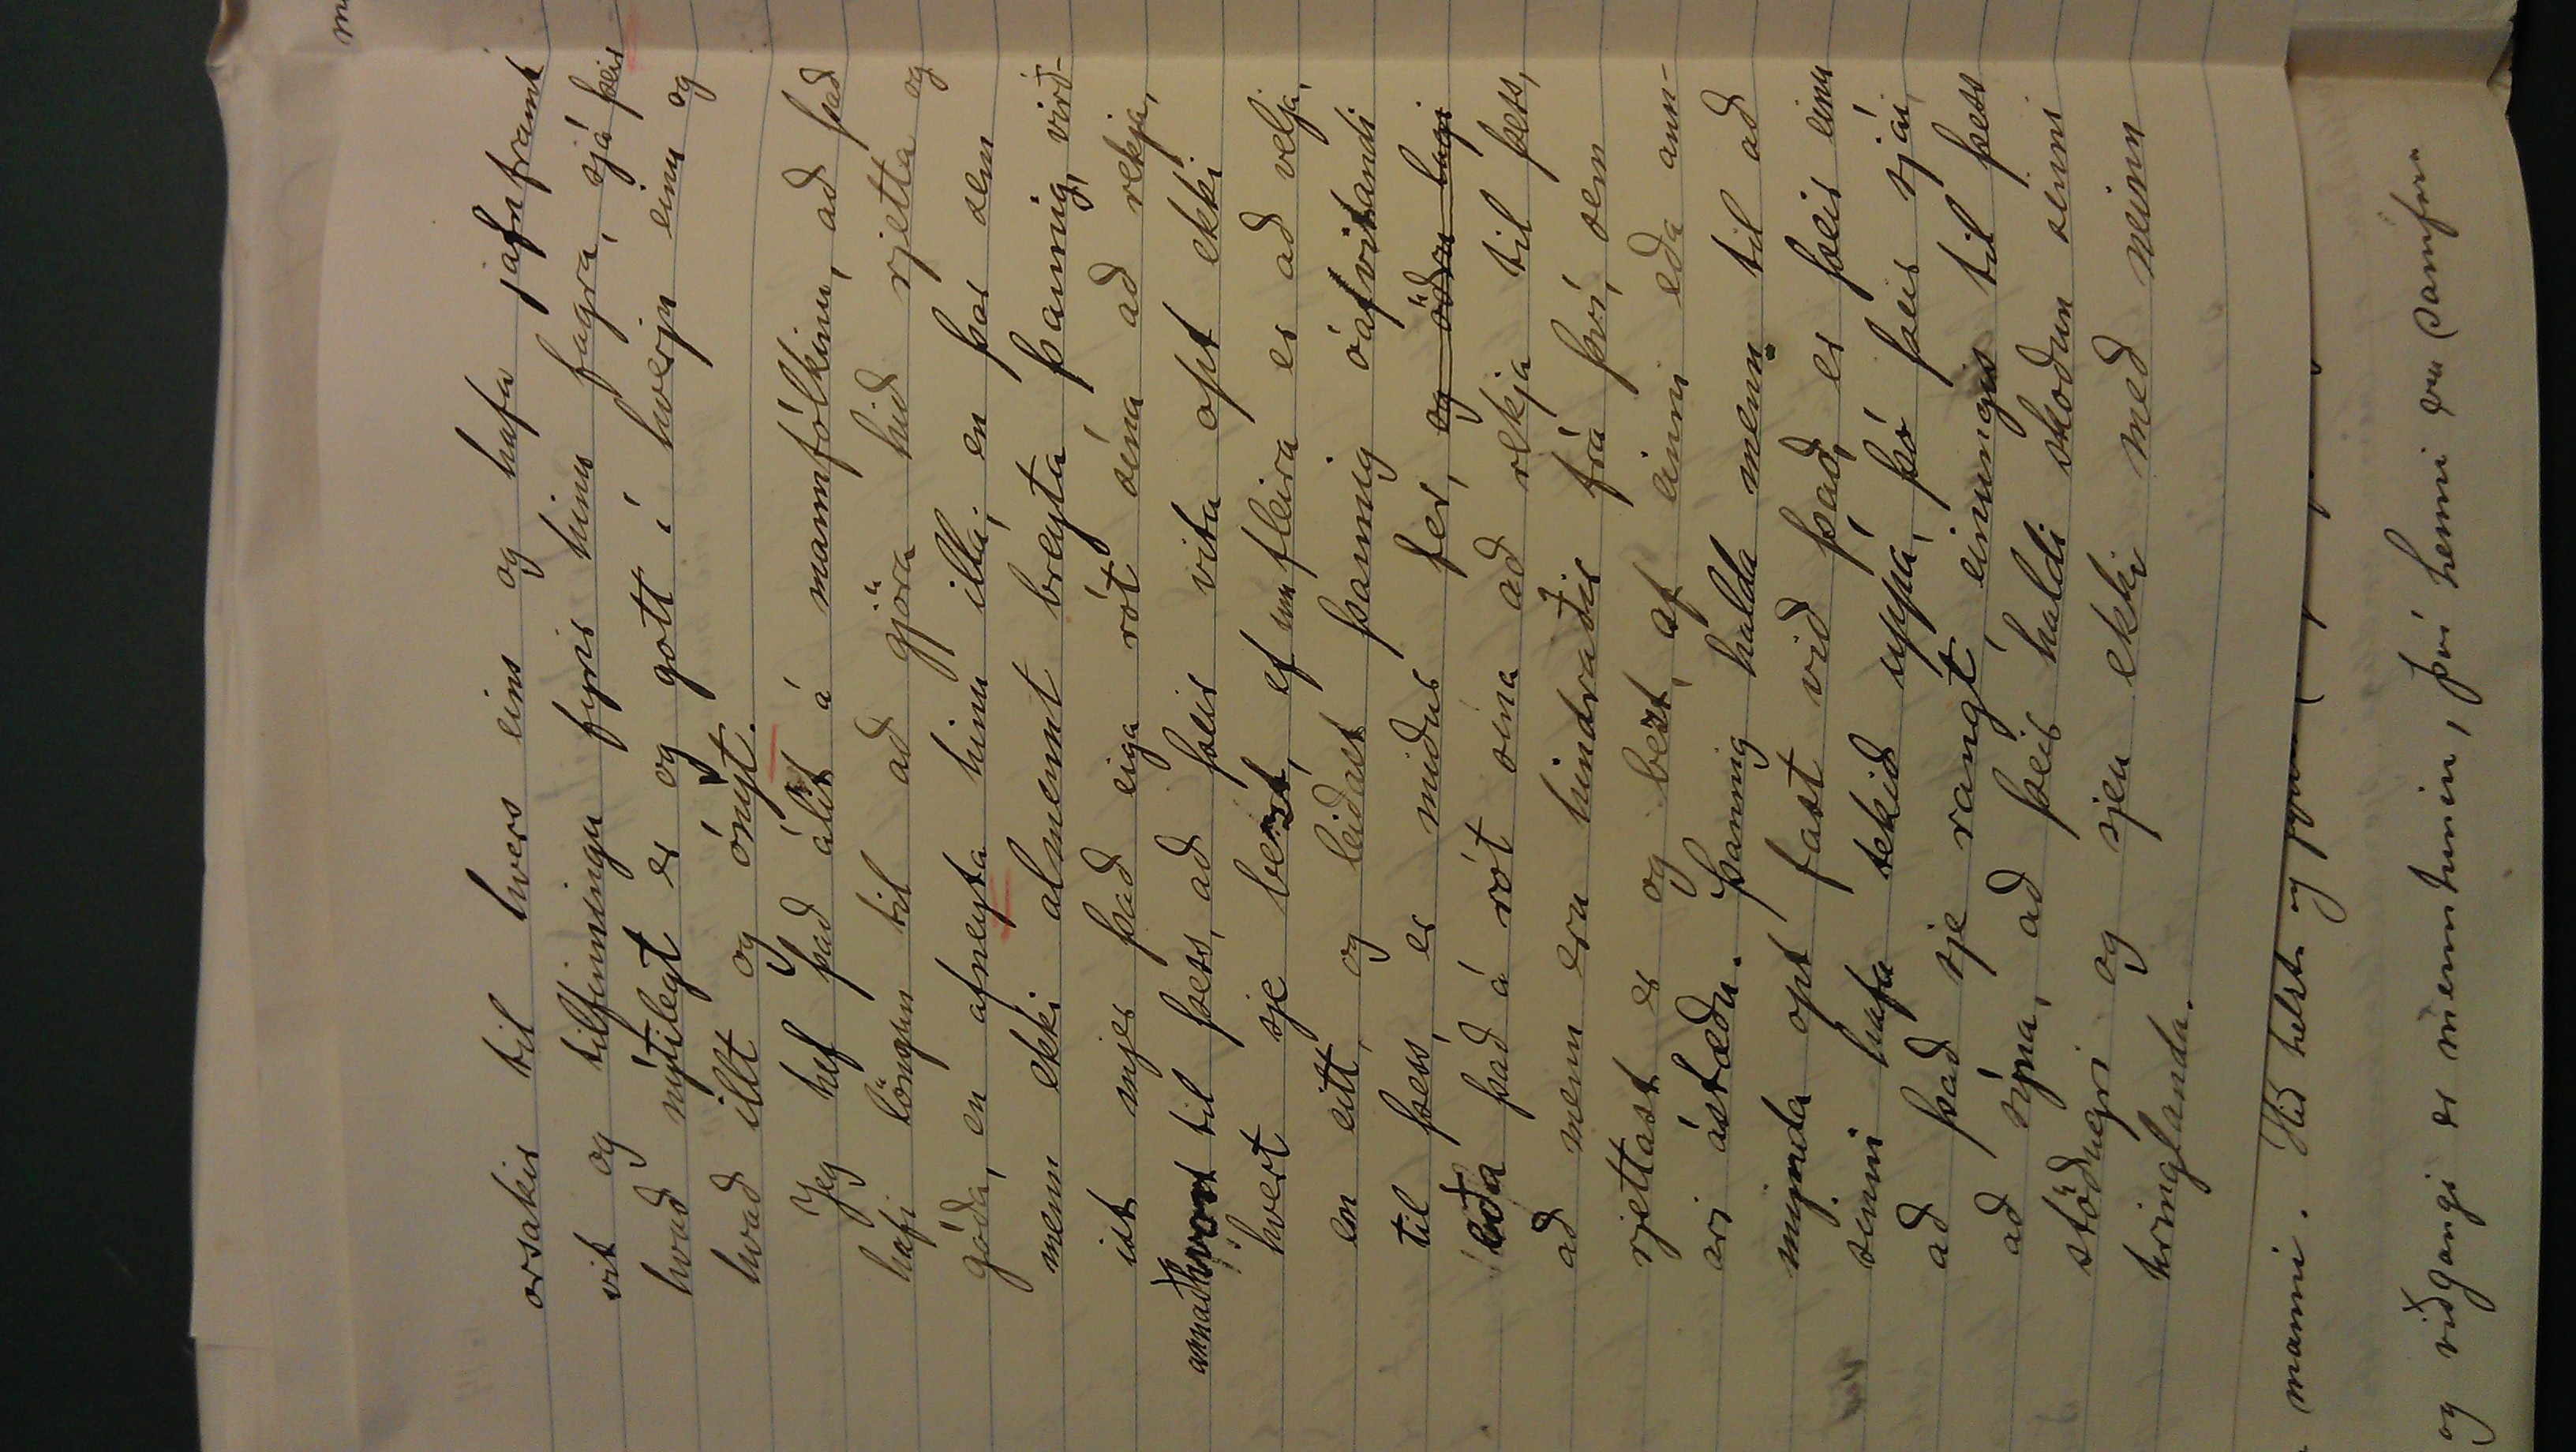 orsakir til hvers eins og hafa jafnframt
vit og tilfinningu fyrir hinu fagra, sjá þeir
hvað nýtilegt er og gott í hverju einu og
hvað illt og ónýt.
Jeg hef það álit á mannfólkinu, að það
hafi löngun til að gjöra hið rjetta og
góða, en afneyta hinu illa; en þar sem
menn ekki almennt breyta þannig, virð-
ist mjer það eiga rót sína að rekja,
annaðhvort til þess, að þeir vita opt ekki
hvert sje bezt, ef um fleira er að velja,
en eitt, og leiðast þannig óafvitandi
til þess, er miður fer, og öðru lagi
eða það á rót sína að rekja til þess,
að menn eru hindraðir frá því, sem
rjettast er og bezt, af einni eða ann-
ari ástæðu. Þannig halda menn til að
mynda opt fast við það, er þeir einu
sinni hafa tekið uppá, þó þeir sjái,
að það sje rangt, einungis til þess
að sýna, að þeir haldi skoðun sinni
stöðugri og sjeu ekki með neinn
hringlanda.
manni. Hið helsta og
og viðgangi er menntunin, því henni eru samfara